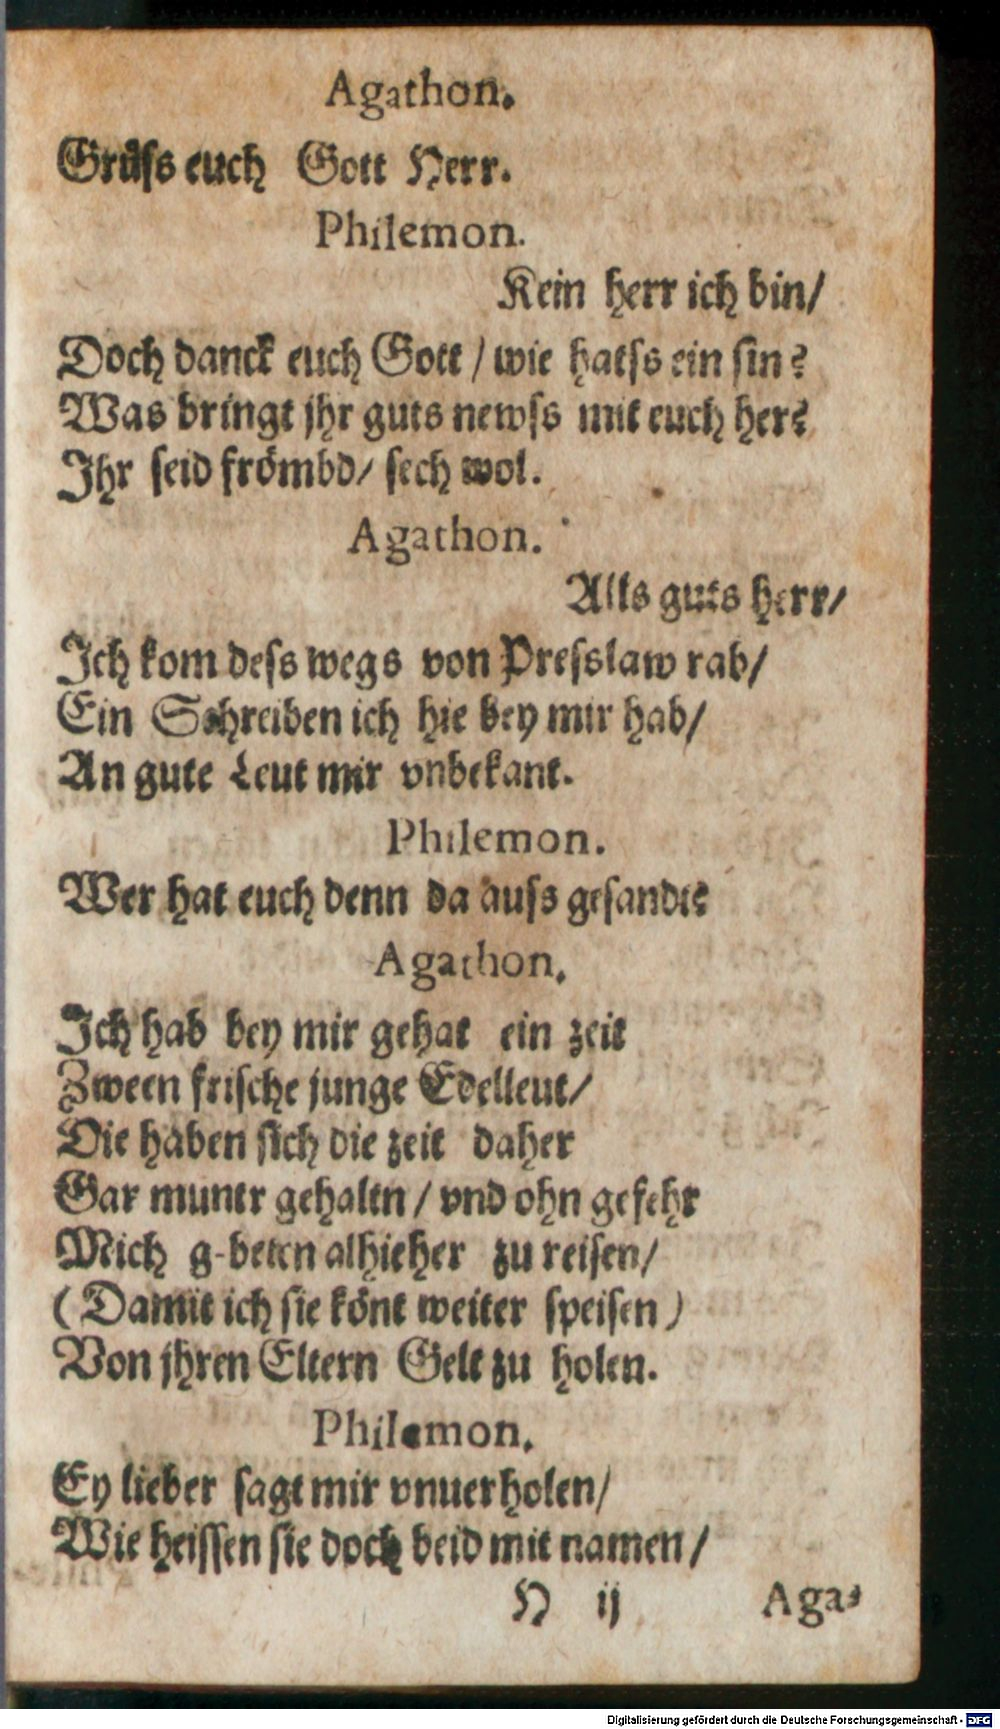 Agathon.
Grüſs euch Gott Herr.
Philemon.
Kein herr ich bin/
Doch danck euch Gott / wie hatſs ein ſin?
Was bringt jhr guts newſs mit euch her?
Jhr ſeid frömbd/ ſech wol.
Agathon.
Alls guts herr/
Jch kom deſs wegs von Preſslaw rab/
Ein Schreiben ich hie bey mir hab/
An gute Leut mir vnbekant.
Philemon.
Wer hat euch denn da auſs geſandt?
Agathon.
Jch hab bey mir gehat ein zeit
Zween friſche junge Edelleut/
Die haben ſich die zeit daher
Gar muntr gehaltn / vnd ohn gefehr
Mich g-beten alhieher zu reiſen/
(Damit ich ſie könt weiter ſpeiſen)
Von jhren Eltern Gelt zu holen.
Philemon.
Ey lieber ſagt mir vnuerholen/
Wie heiſſen ſie doch beid mit namen/
H ij Aga-
Digitalisierung gefördert durch die Deutsche Forschungsgemeinschaft - DFG